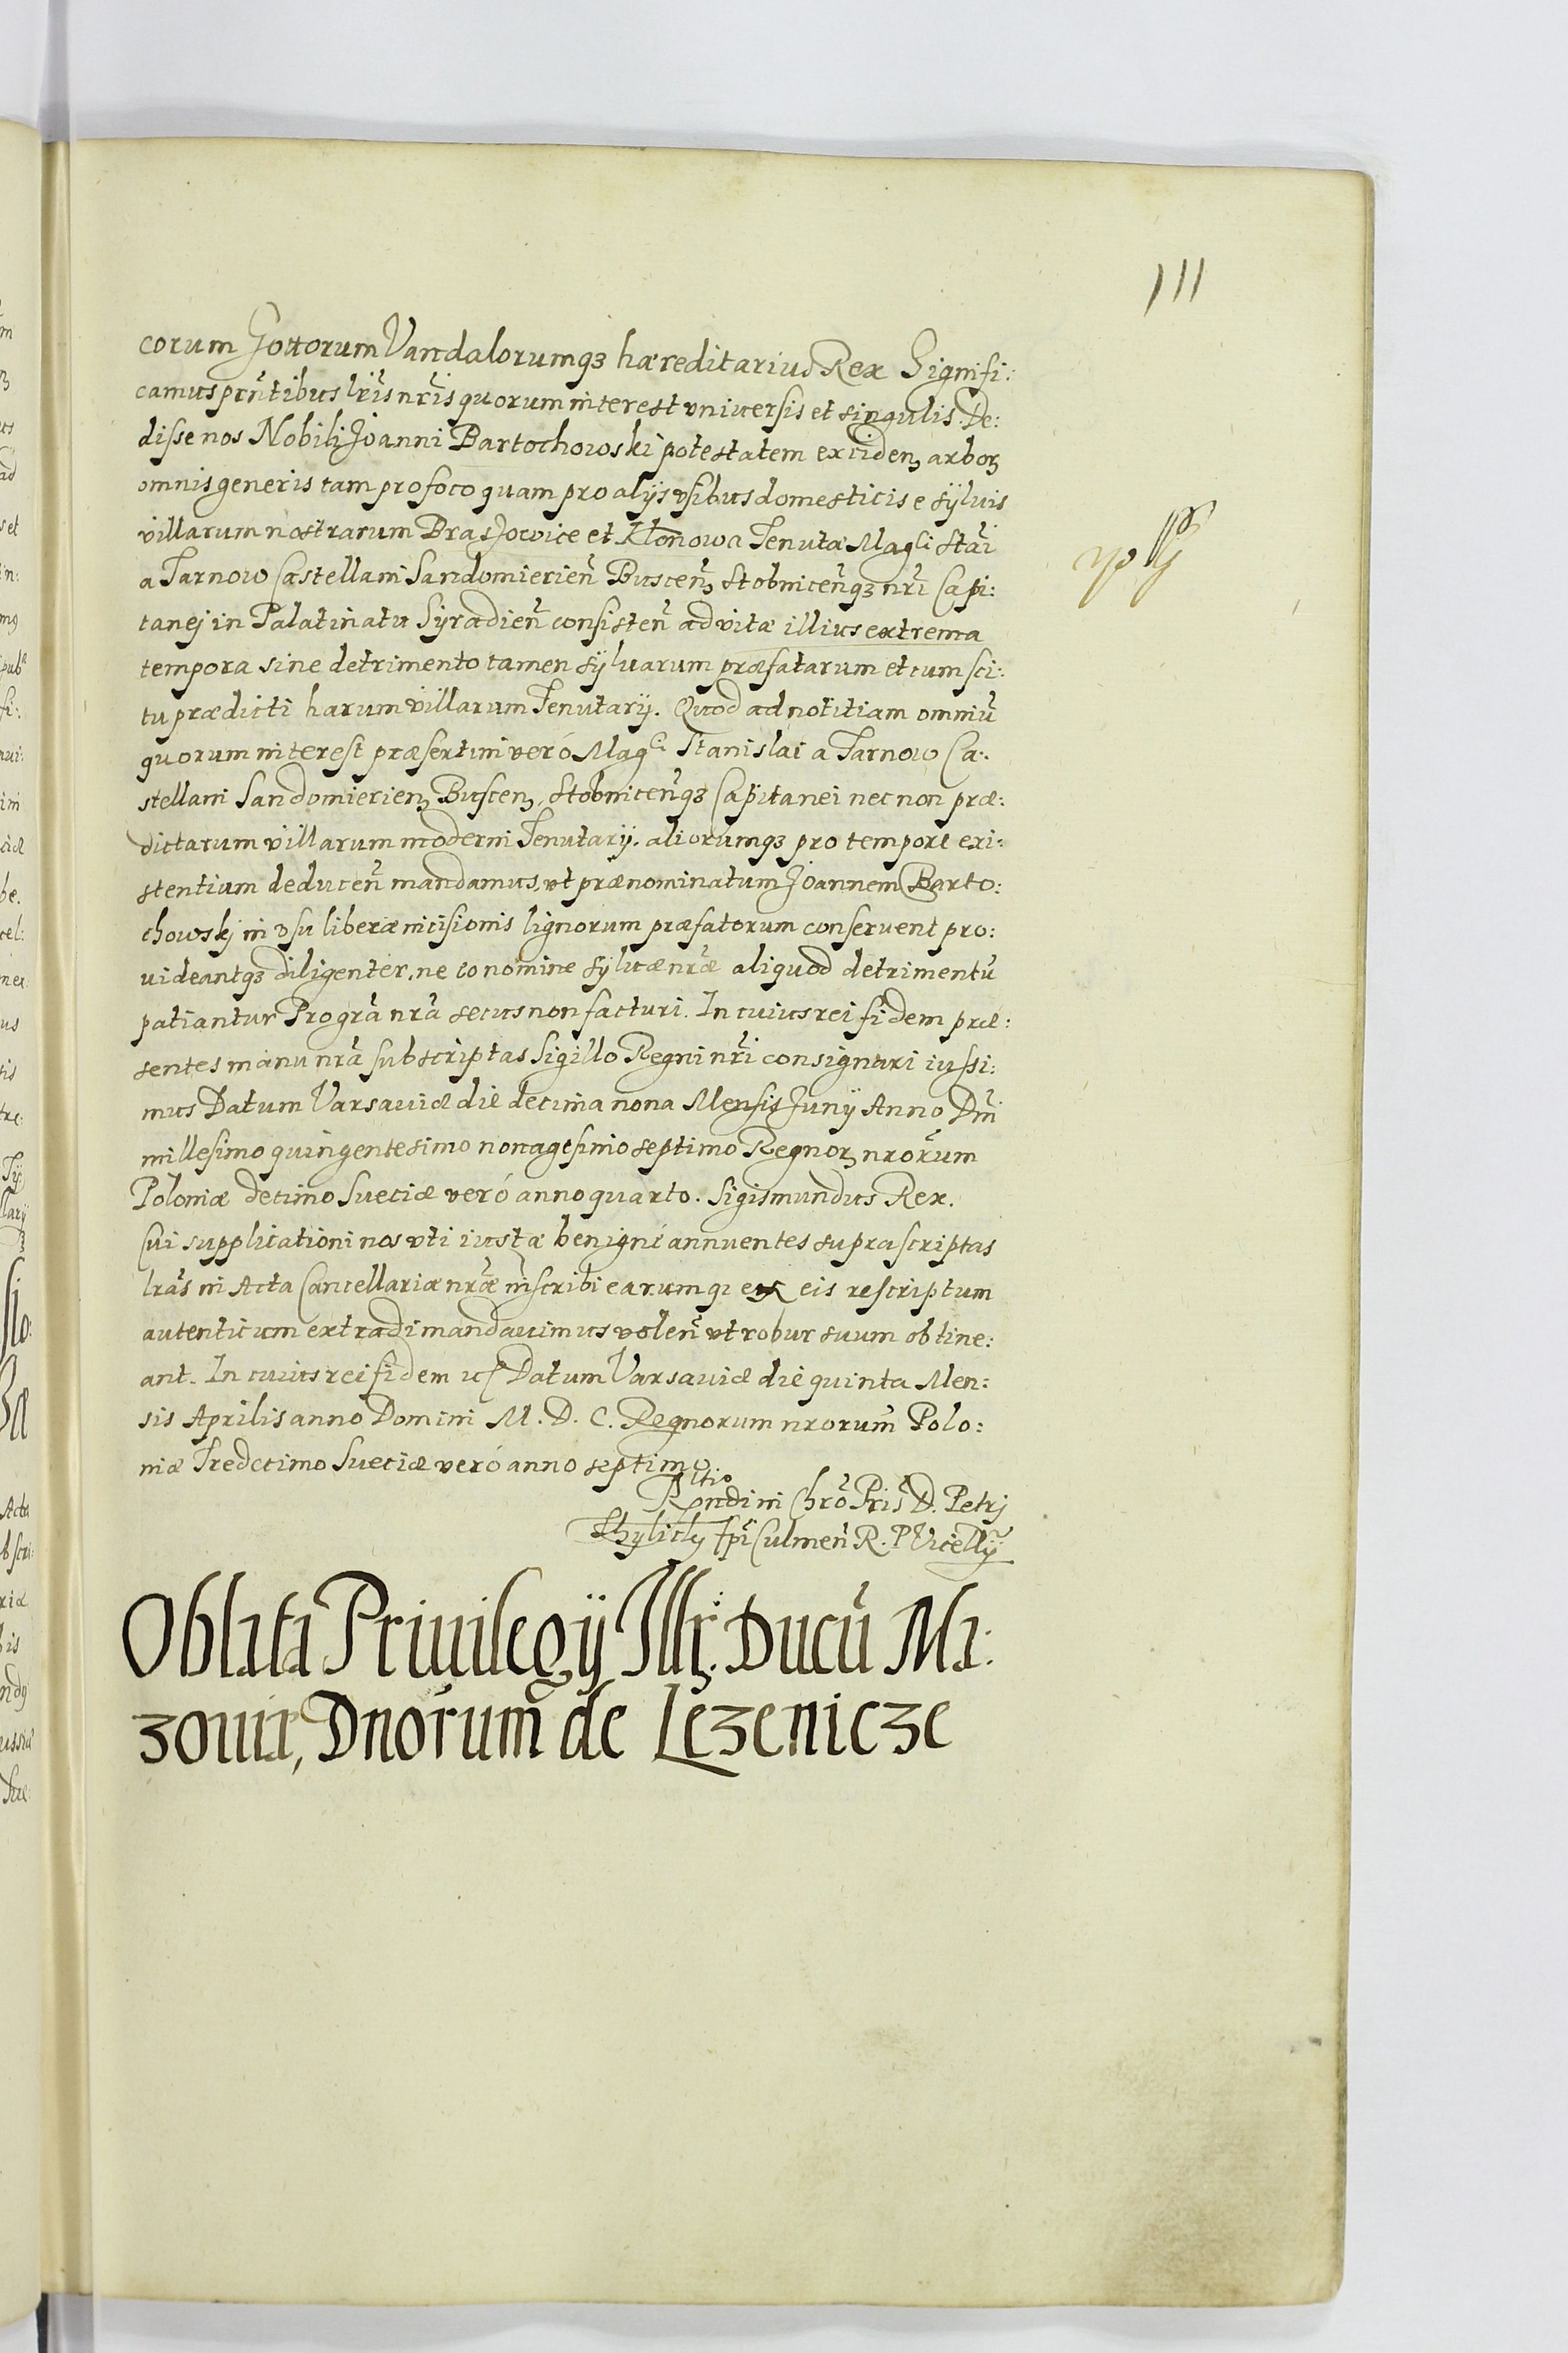 111
corum Gottorum Vandalorumqꝫ hæreditarius Rex Signifi:
camus pñtibus lr̃is nr̃is quorum interest vniuersis et singulis. De:
disse nos Nobili Joanni Bartochowski potestatem excidenꝫ arboꝝ
omnis generis tam pro foco quam pro alijs vsibus domesticis e syluis
villarum nostrarum Braszowice et Klonowa Tenutæ Magci Stãi
a Tarnow Castellani Sandomirien̄ Buscenꝫ Stobnicen̄qꝫ nr̃i Capi:
tanej in Palatinatu Syradien̄ consisten̄ ad vitæ illius extrema
tempora sine detrimento tamen syluarum præfatarum et cum sci:
tu prædicti harum villarum Tenutarij. Quod ad notitiam omniũ
quorum interest præsertim veró Magci Stanislai a Tarnow Ca:
stellani Sandomirienꝫ Buscenꝫ, Stobnicen̄qꝫ Capitanei nec non præ:
dictarum villarum moderni Tenutarij. aliorumqꝫ pro tempore exi:
stentium deducen̄ mandamus, vt prænominatum Joannem Barto:
chowskj in vsu liberæ incisionis lignorum præfatorum conseruent pro:
uideantqꝫ diligenter, ne eo nomine syluæ nr̃æ aliquod detrimentũ
patiantur Pro gr̃a nr̃a secus non facturi. In cuius rei fidem præ:
sentes manu nr̃a subscriptas Sigillo Regni nr̃i consignari iussi:
mus Datum Varsauiæ die decima nona Mensis Junij Anno Dñi
millesimo quingentesimo nonagesimo septimo Regnoꝝ nrõrum
Poloniæ decimo Sueciæ veró anno quarto. Sigismundus Rex.
Cui supplicationi nos vti iustæ benigné annuentes suprascriptas
lr̃as in Acta Cancellariæ nr̃æ inscribi earumqꝫ ex eis rescriptum
autenticum extradi mandauimus volen̄ vt robur suum obtine:
ant. In cuius rei fidem Datum Varsauiæ die quinta Men:
sis Aprilis anno Domini M. D. C. Regnorum nrorum̃ Polo:
niæ Tredecimo Sueciæ veró anno septimo.
Rltio Rẽndi in Chrõ Pris̃ D. Petrj
Thylicky Ep̃i Culmen̄ R. P. Vicellij
Oblata Priuilegij Illr. Ducũ Ma:
zouiæ, Dnórum̃ de Lezenicze